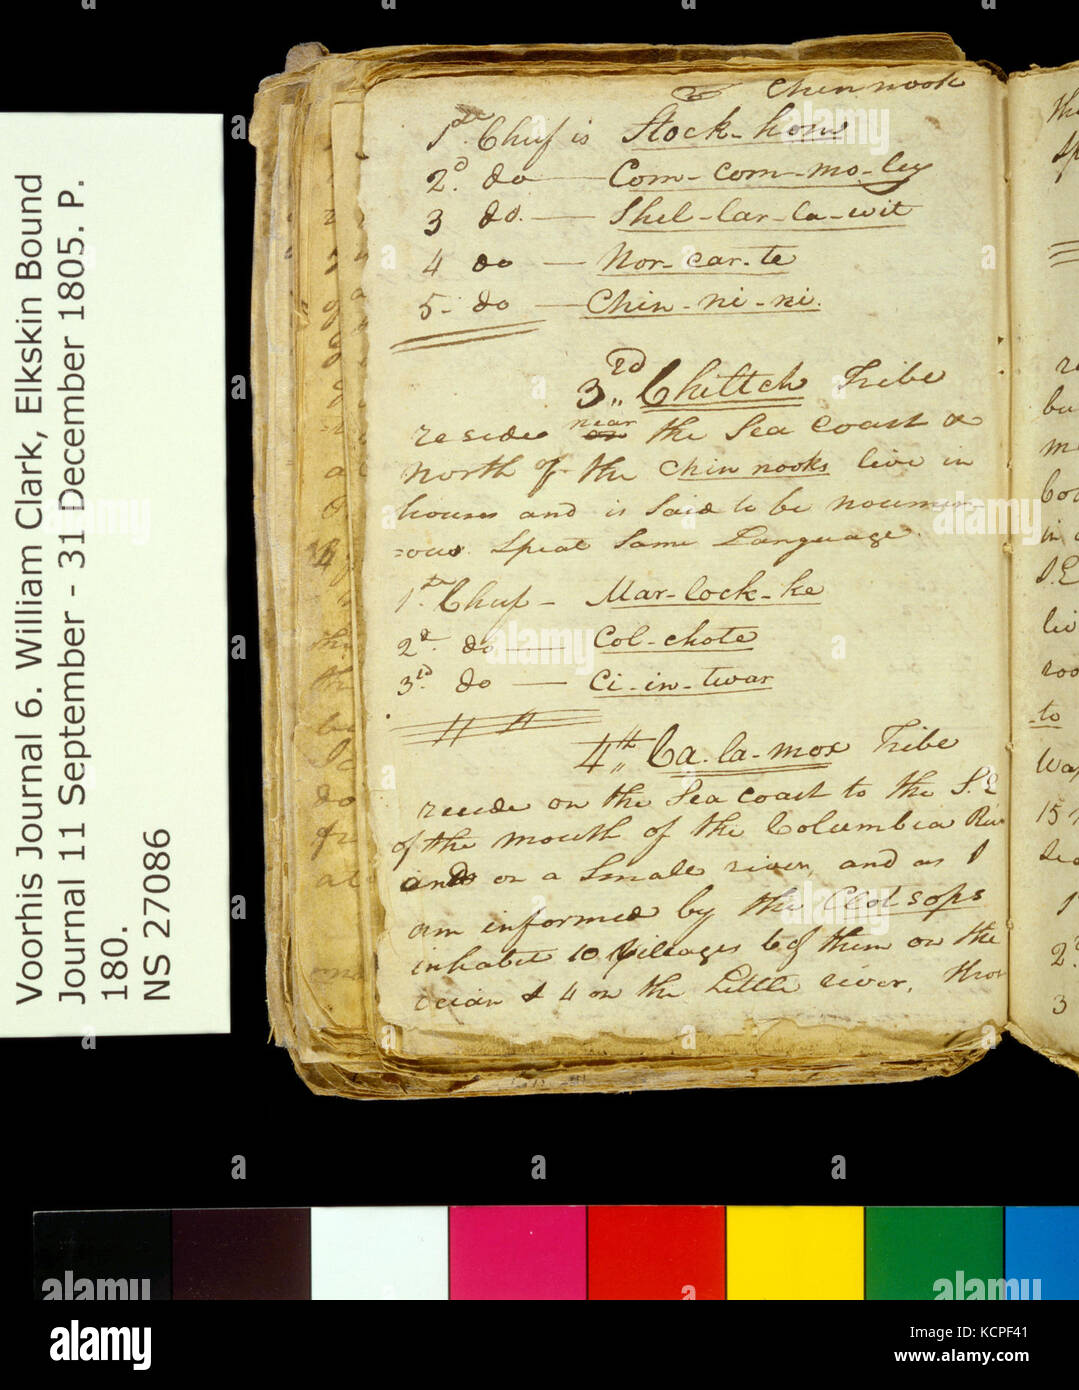 Voorhis Journal 6. William Clark, Elkskin Bound
Journal 11 September - 31 December 1805. P.
180.
NS 27086
2 Chin nook
1st Chief is Stock-home
2d. do — Com-com-mo-ley
3 do. — Shel-lar-la-wit
4 do — Nor-car-te
5- do — Chin-ni-ni.
3rd Chiltch Tribe
near
reside on the Sea Coast &
North of the Chin nooks live in
houses and is Said to be noumer
=ous. Speak Same Language.
1st. Chief - Mar-lock-ke
2d. do — Col-chote
3rd. do — Ci-in-twar
4th Ca-la-mox Tribe
reside on the Sea Coast to the S.E
of the mouth of the Columbia Riv
and on a Small river, and as I
am informed by the Clot sops
inhabit 10 Villages 6 of them on the
ocian & 4 on the Little river, thos
alamy
a
alamy
Image ID: KCPF41
www.alamy.com